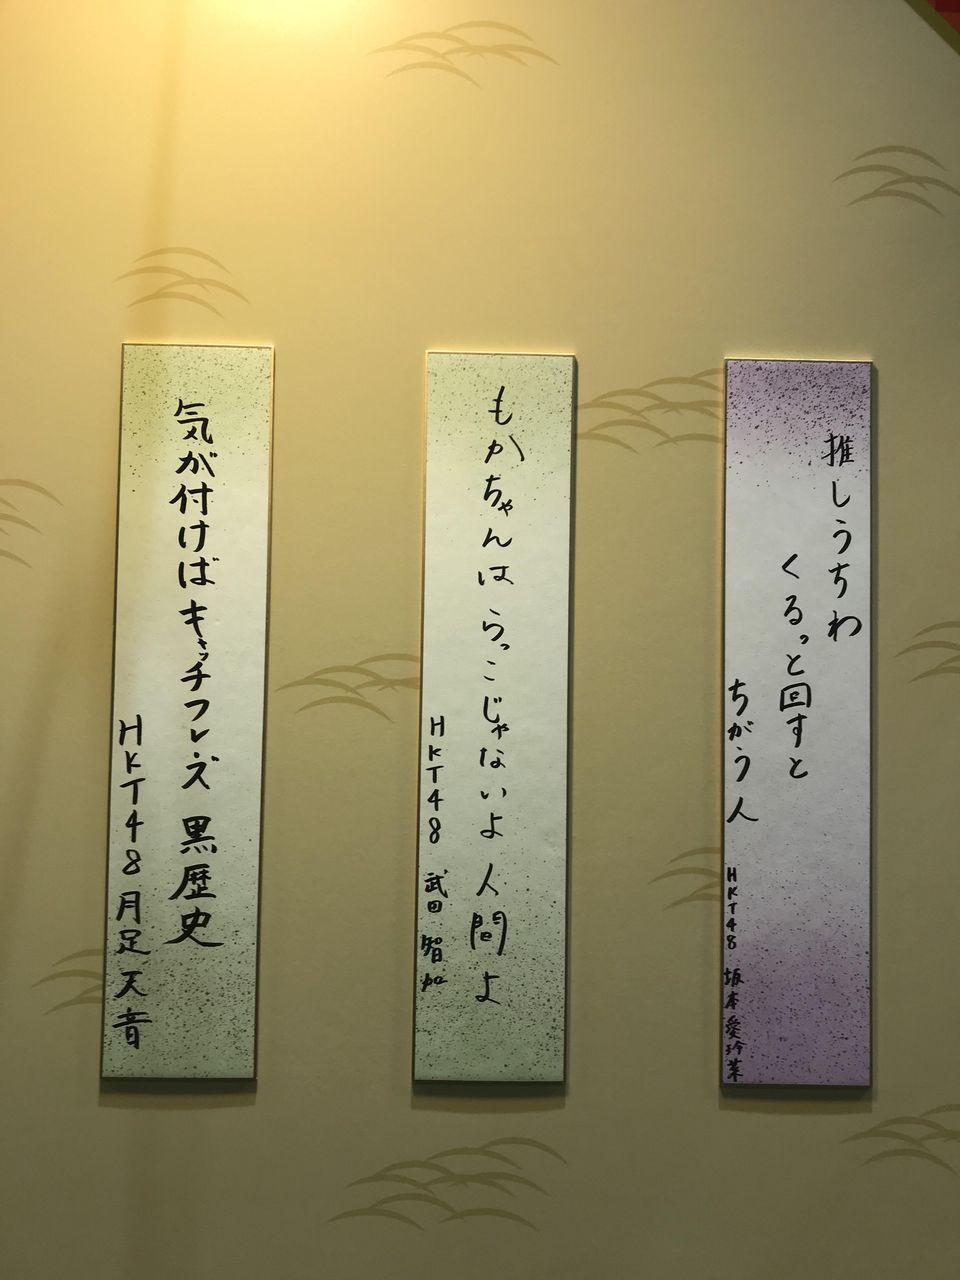 推しうちわ
くるっと回すと
ちがう人
HKT48 坂本愛玲菜
もかちゃんは らっこじゃないよ 人間よ
HKT48 武田智加
気が付けば キャッチフレーズ 黒歴史
HKT48 月足天音